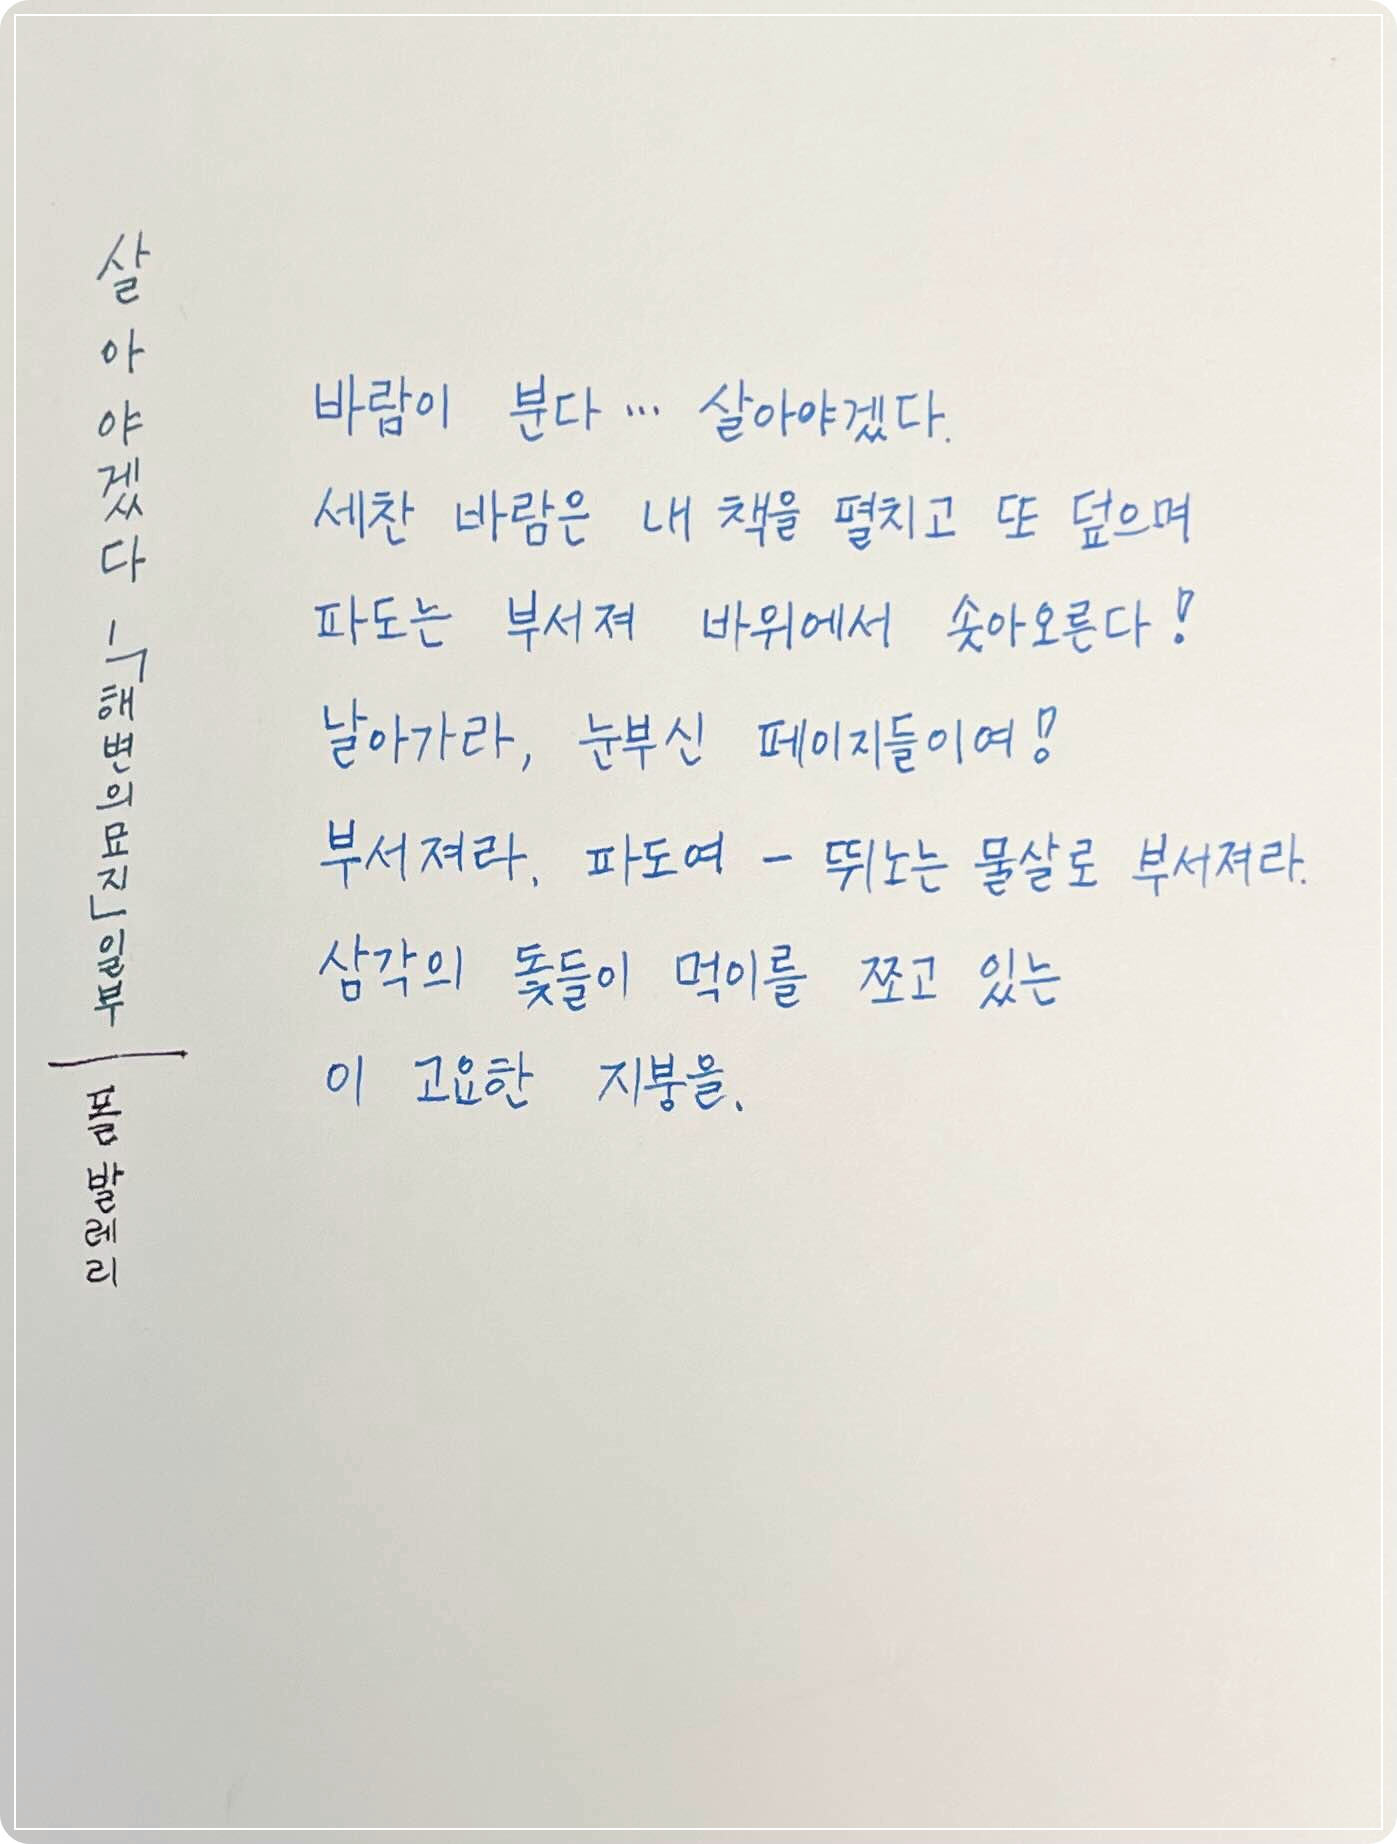 살아야겠다 -「해변의묘지」일부 | 폴 발레리
바람이 분다… 살아야겠다.
세찬 바람은 내 책을 펼치고 또 덮으며
파도는 부서져 바위에서 솟아오른다!
날아가라, 눈부신 페이지들이여!
부서져라, 파도여 - 뛰노는 물살로 부서져라.
삼각의 돛들이 먹이를 쪼고 있는
이 고요한 지붕을.